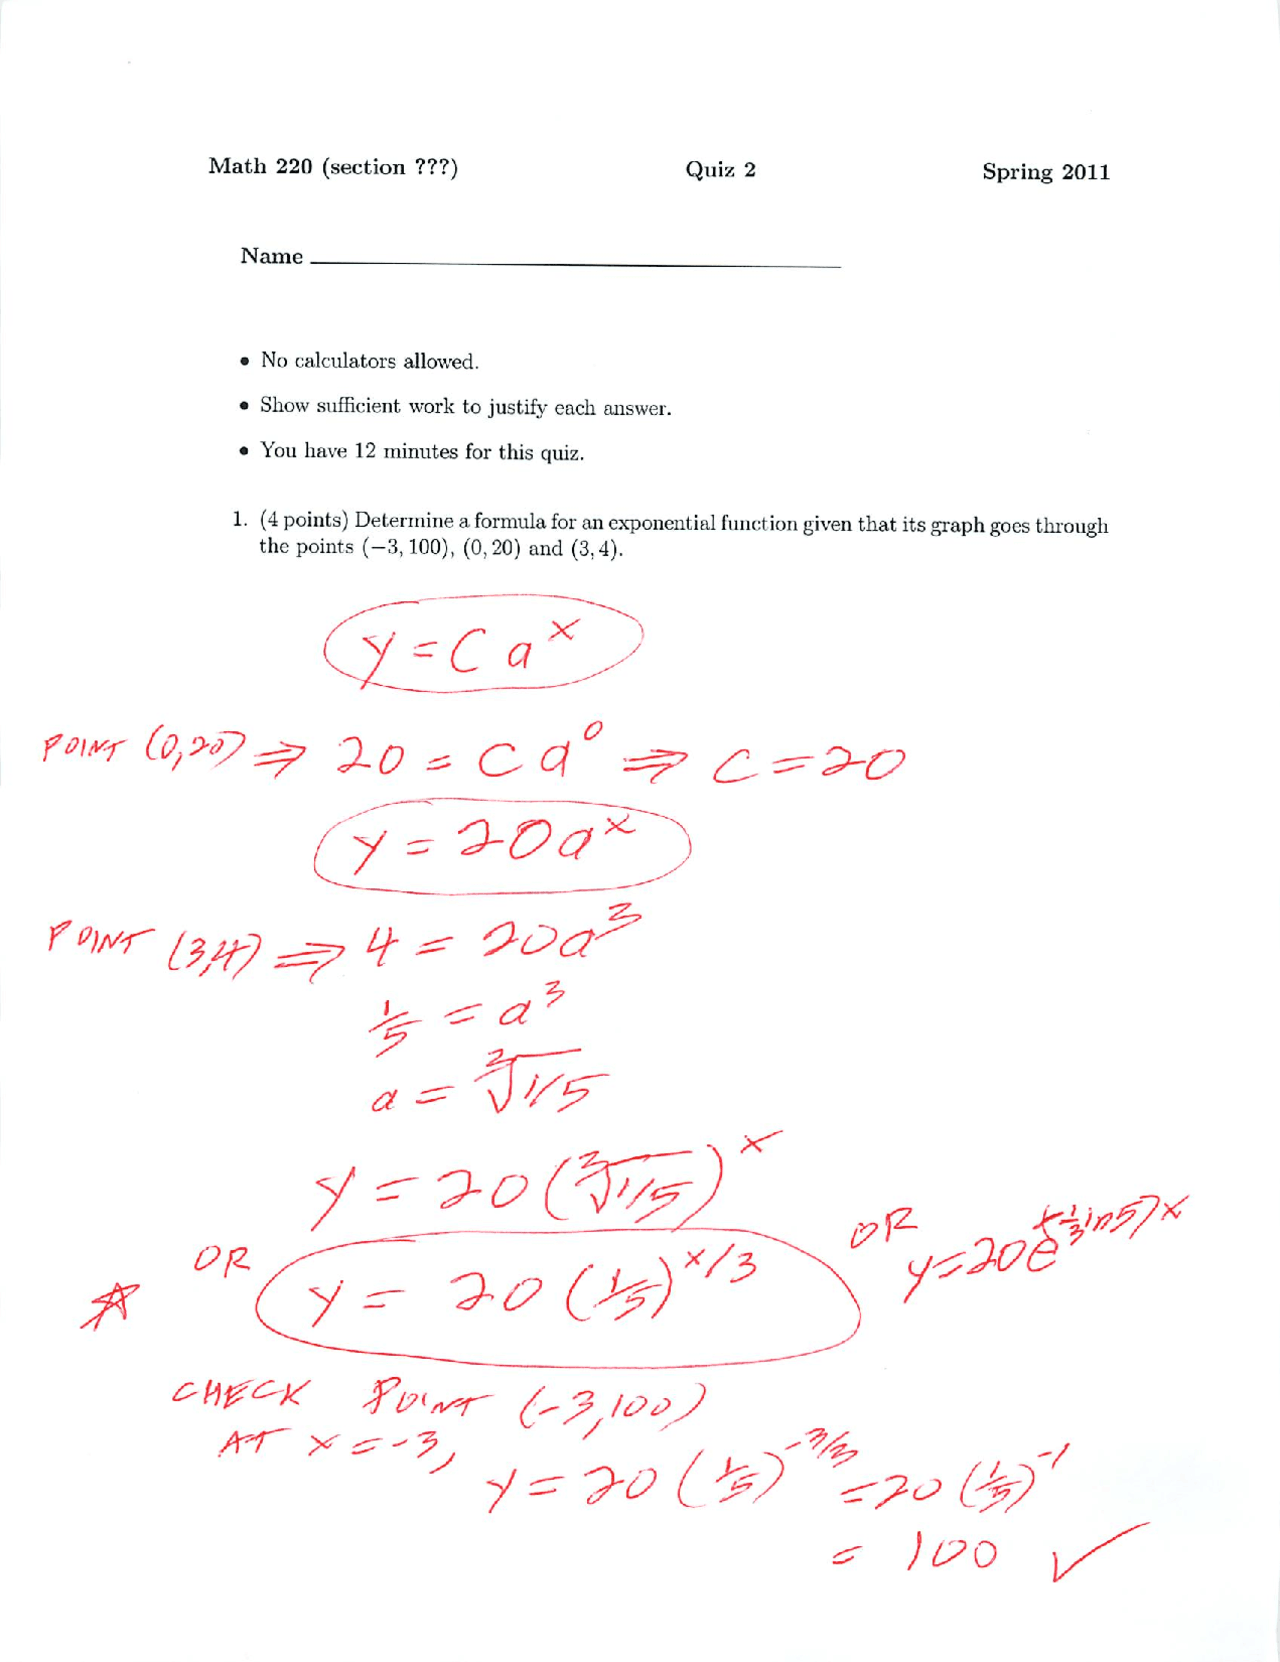 Math 220 (section ???) Quiz 2 Spring 2011
Name
• No calculators allowed.
• Show sufficient work to justify each answer.
• You have 12 minutes for this quiz.
1. (4 points) Determine a formula for an exponential function given that its graph goes through
the points (−3, 100), (0, 20) and (3, 4).
y = C a^x
POINT (0,20) ⇒ 20 = C a^0 ⇒ C = 20
y = 20a^x
POINT (3,4) ⇒ 4 = 20a^3
1/5 = a^3
a = ∛1/5
y = 20(∛1/5)^x
OR y = 20(1/5)^x/3
OR y = 20e^(-1/3 ln5)x
CHECK POINT (-3,100)
AT x = -3,
y = 20(1/5)^-3/3 = 20(1/5)^-1
= 100 ✓